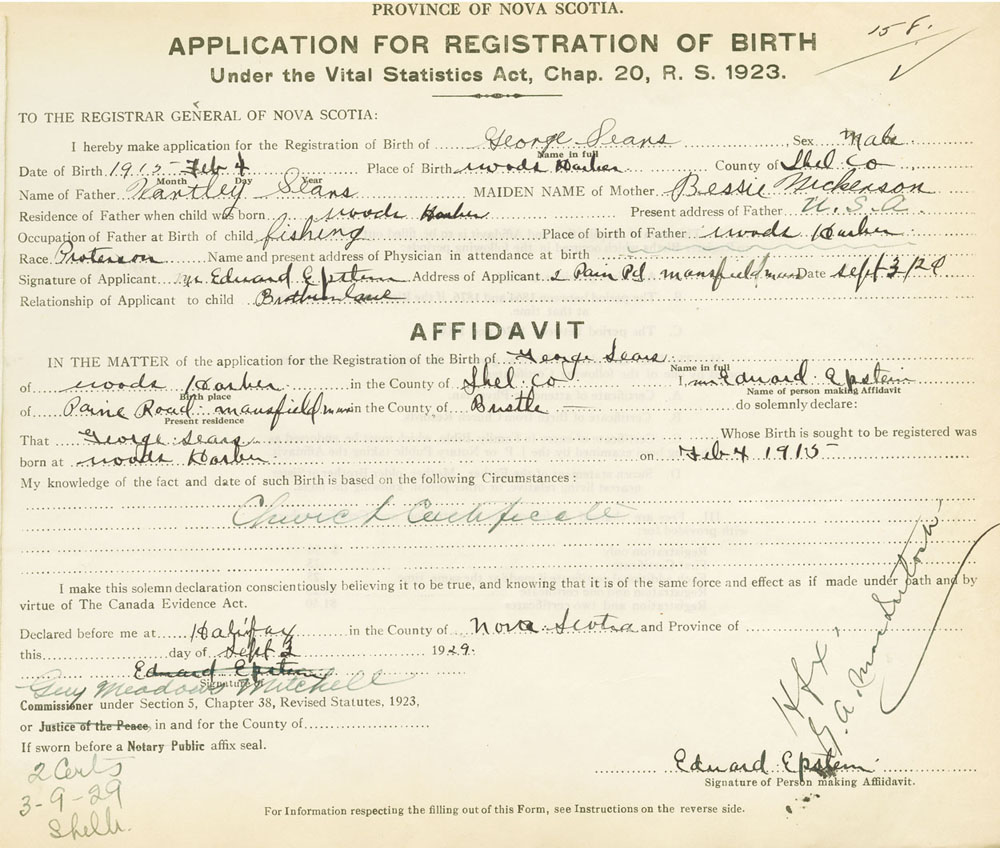 PROVINCE OF NOVA SCOTIA.
15 8.
APPLICATION FOR REGISTRATION OF BIRTH
Under the Vital Statistics Act, Chap. 20, R. S. 1923.
TO THE REGISTRAR GENERAL OF NOVA SCOTIA:
I hereby make application for the Registration of Birth of George Sears Sex Male
Name in full
Date of Birth 1915 Feb 4 Place of Birth woods Harber County of Shel Co
Month Day Year
Name of Father Sears MAIDEN NAME of Mother Bessie Nickerson
Residence of Father when child was born woods Harber Present address of Father U.S.A.
Occupation of Father at Birth of child fishing Place of birth of Father woods Harber
Race Name and present address of Physician in attendance at birth
Signature of Applicant mr Eduard Epstein Address of Applicant mansfield mass Date sept 3/29
Relationship of Applicant to child
AFFIDAVIT
IN THE MATTER of the application for the Registration of the Birth of George Sears
Name in full
of woods Harber in the County of Shel Co I, mr Eduard Epstein
Birth place Name of person making Affidavit
of Paine Road mansfield mass in the County of Bristle do solemnly declare:
Present residence
That George Sears Whose Birth is sought to be registered was
born at woods Harber on Feb 4 1915
My knowledge of the fact and date of such Birth is based on the following Circumstances:
Church Certificate
I make this solemn declaration conscientiously believing it to be true, and knowing that it is of the same force and effect as if made under oath and by
virtue of The Canada Evidence Act.
Declared before me at Halifax in the County of Nova Scotia and Province of
this day of Sept 3 1929.
Eduard Epstein
Signature of
Guy Meadows Mitchell
Commissioner under Section 5, Chapter 38, Revised Statutes, 1923,
or Justice of the Peace, in and for the County of
If sworn before a Notary Public affix seal.
Hfx
G. A. MacIntosh
2 Certs
3-9-29
Shelb.
Eduard Epstein
Signature of Person making Affidavit.
For Information respecting the filling out of this Form, see Instructions on the reverse side.